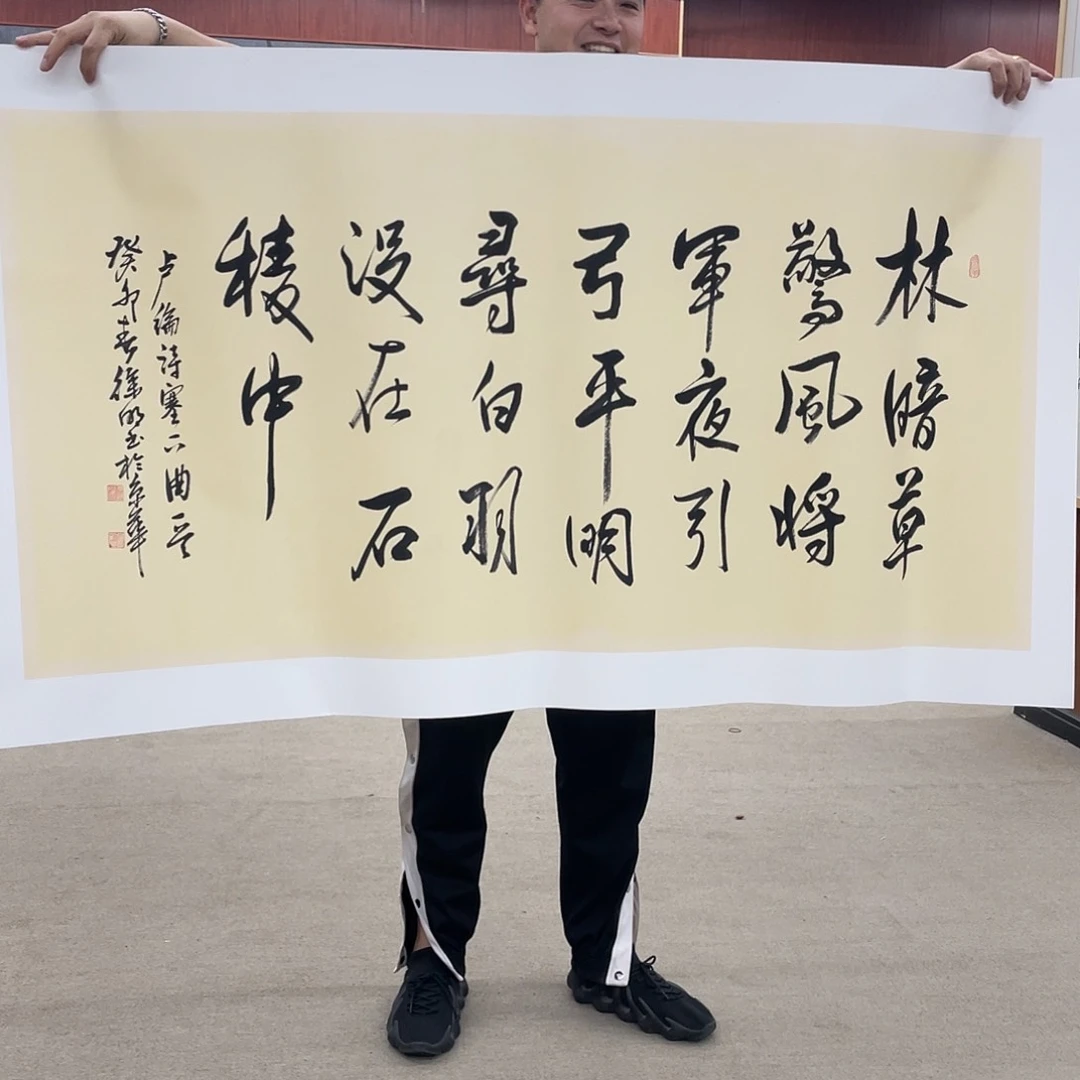 林暗草
驚風将
軍夜引
弓平明
尋白羽
没在石
稜中
卢綸詩塞下曲一首
癸卯春徐明书於京華